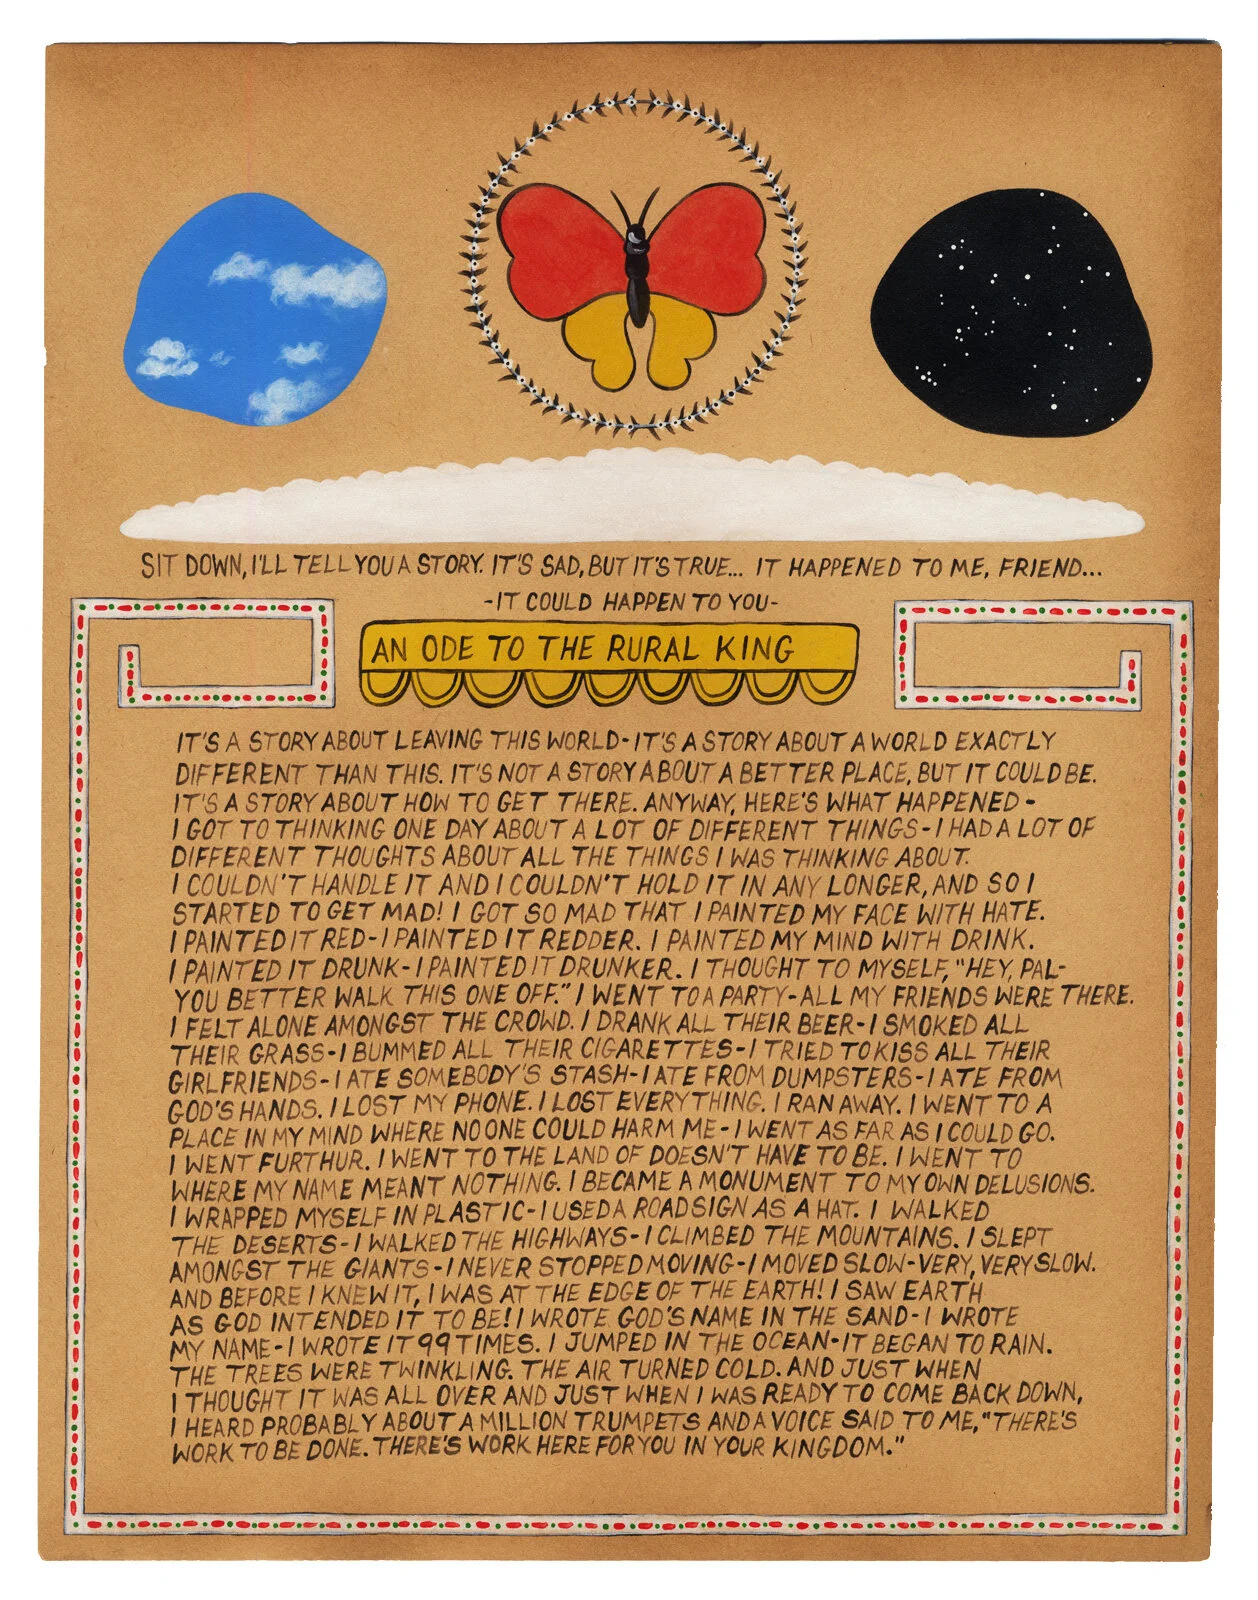 SIT DOWN, I'LL TELL YOU A STORY. IT'S SAD, BUT IT'S TRUE... IT HAPPENED TO ME, FRIEND...
-IT COULD HAPPEN TO YOU-
AN ODE TO THE RURAL KING
IT'S A STORY ABOUT LEAVING THIS WORLD-IT'S A STORY ABOUT A WORLD EXACTLY
DIFFERENT THAN THIS. IT'S NOT A STORY ABOUT A BETTER PLACE, BUT IT COULD BE.
IT'S A STORY ABOUT HOW TO GET THERE. ANYWAY, HERE'S WHAT HAPPENED-
I GOT TO THINKING ONE DAY ABOUT A LOT OF DIFFERENT THINGS-I HAD A LOT OF
DIFFERENT THOUGHTS ABOUT ALL THE THINGS I WAS THINKING ABOUT.
I COULDN'T HANDLE IT AND I COULDN'T HOLD IT IN ANY LONGER, AND SO I
STARTED TO GET MAD! I GOT SO MAD THAT I PAINTED MY FACE WITH HATE.
I PAINTED IT RED-I PAINTED IT REDDER. I PAINTED MY MIND WITH DRINK.
I PAINTED IT DRUNK-I PAINTED IT DRUNKER. I THOUGHT TO MYSELF, "HEY, PAL-
YOU BETTER WALK THIS ONE OFF." I WENT TO A PARTY-ALL MY FRIENDS WERE THERE.
I FELT ALONE AMONGST THE CROWD. I DRANK ALL THEIR BEER-I SMOKED ALL
THEIR GRASS-I BUMMED ALL THEIR CIGARETTES-I TRIED TO KISS ALL THEIR
GIRLFRIENDS-I ATE SOMEBODY'S STASH-I ATE FROM DUMPSTERS-I ATE FROM
GOD'S HANDS. I LOST MY PHONE. I LOST EVERYTHING. I RAN AWAY. I WENT TO A
PLACE IN MY MIND WHERE NO ONE COULD HARM ME-I WENT AS FAR AS I COULD GO.
I WENT FURTHUR. I WENT TO THE LAND OF DOESN'T HAVE TO BE. I WENT TO
WHERE MY NAME MEANT NOTHING. I BECAME A MONUMENT TO MY OWN DELUSIONS.
I WRAPPED MYSELF IN PLASTIC-I USED A ROADSIGN AS A HAT. I WALKED
THE DESERTS-I WALKED THE HIGHWAYS-I CLIMBED THE MOUNTAINS. I SLEPT
AMONGST THE GIANTS-I NEVER STOPPED MOVING-I MOVED SLOW-VERY, VERY SLOW.
AND BEFORE I KNEW IT, I WAS AT THE EDGE OF THE EARTH! I SAW EARTH
AS GOD INTENDED IT TO BE! I WROTE GOD'S NAME IN THE SAND-I WROTE
MY NAME-I WROTE IT 99 TIMES. I JUMPED IN THE OCEAN-IT BEGAN TO RAIN.
THE TREES WERE TWINKLING. THE AIR TURNED COLD. AND JUST WHEN
I THOUGHT IT WAS ALL OVER AND JUST WHEN I WAS READY TO COME BACK DOWN,
I HEARD PROBABLY ABOUT A MILLION TRUMPETS AND A VOICE SAID TO ME, "THERE'S
WORK TO BE DONE. THERE'S WORK HERE FOR YOU IN YOUR KINGDOM."